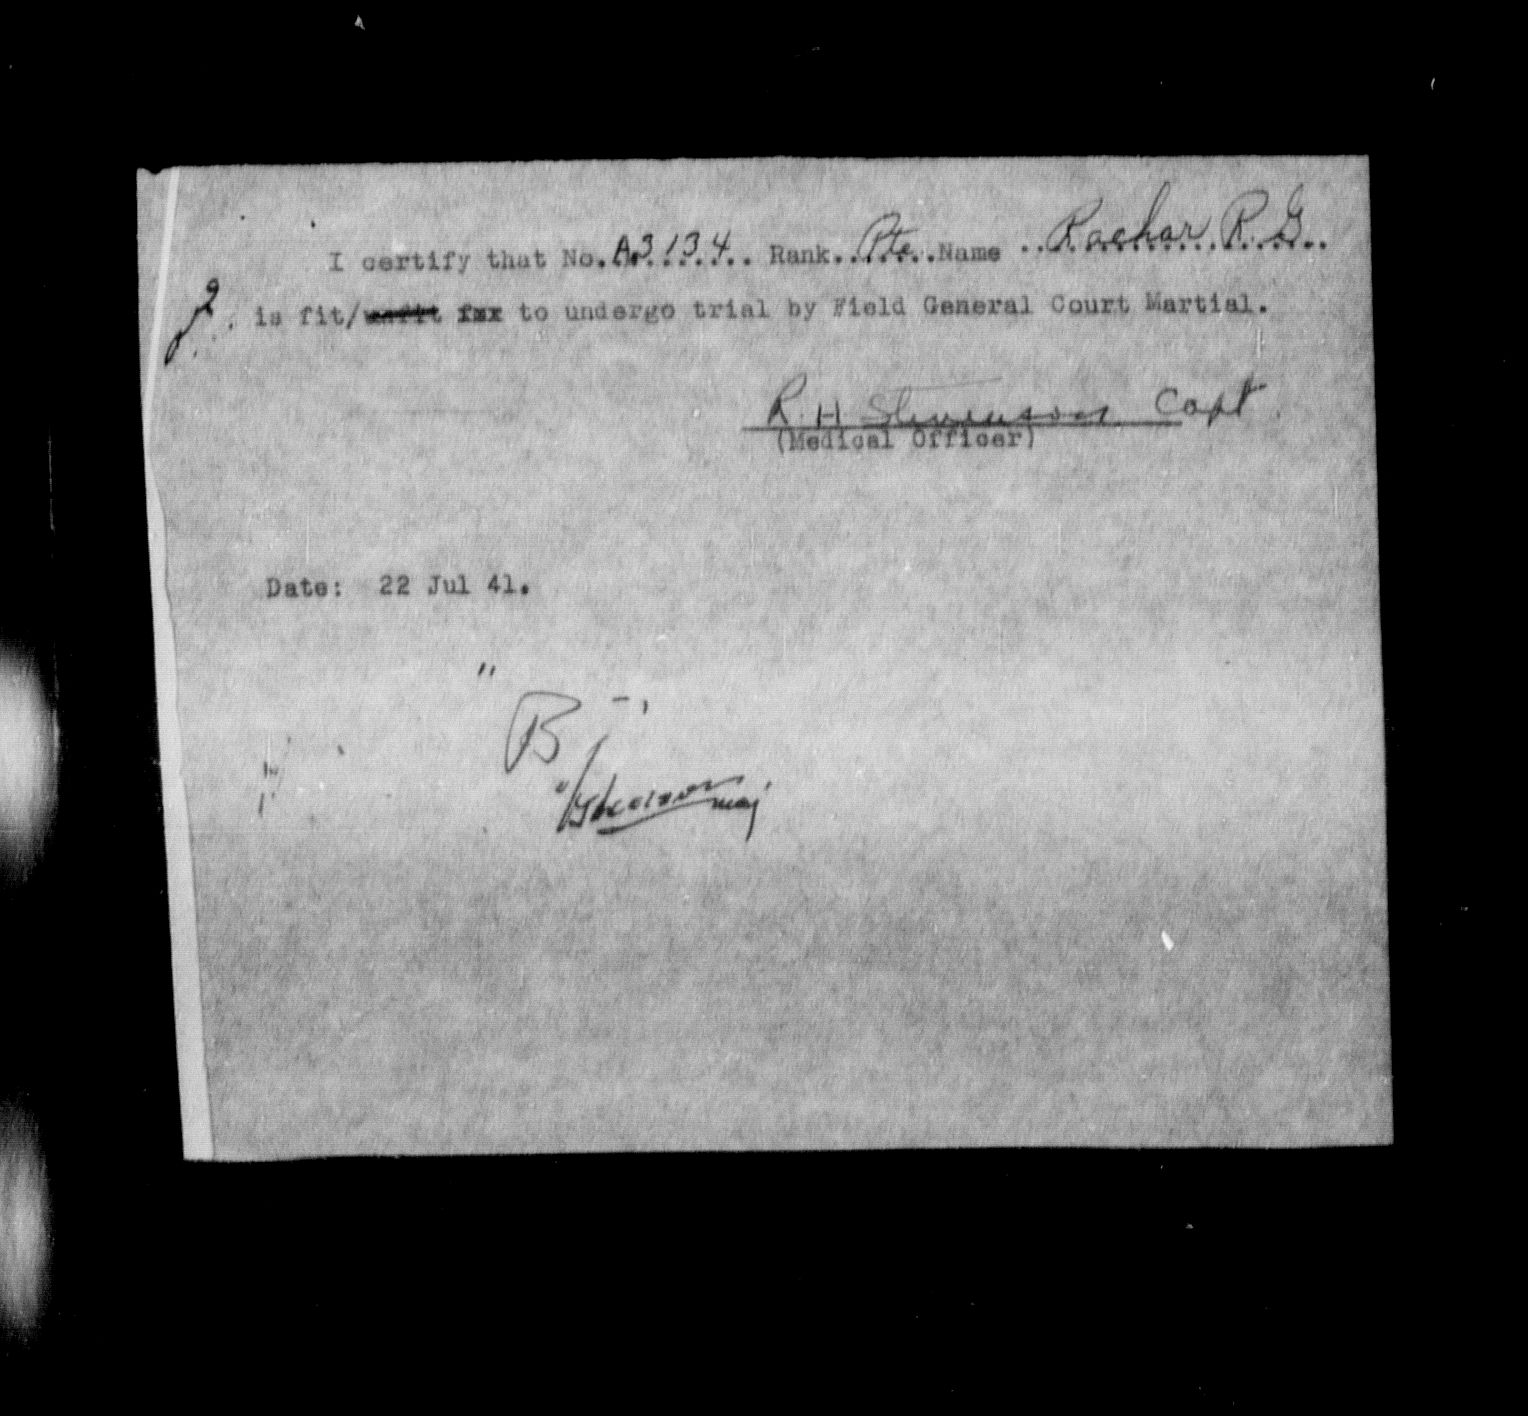 I certify that No. A3134 Rank Pte Name Rachar R.G.
is fit/unfit fxx to undergo trial by Field General Court Martial.
R H Stevenson Capt
(Medical Officer)
Date: 22 Jul 41.
"B"
Maj